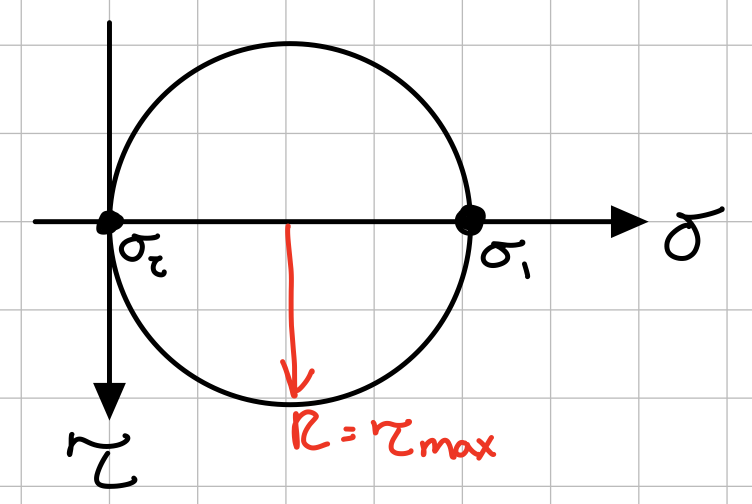 σ
σ₂
σ₁
R = τmax
τ